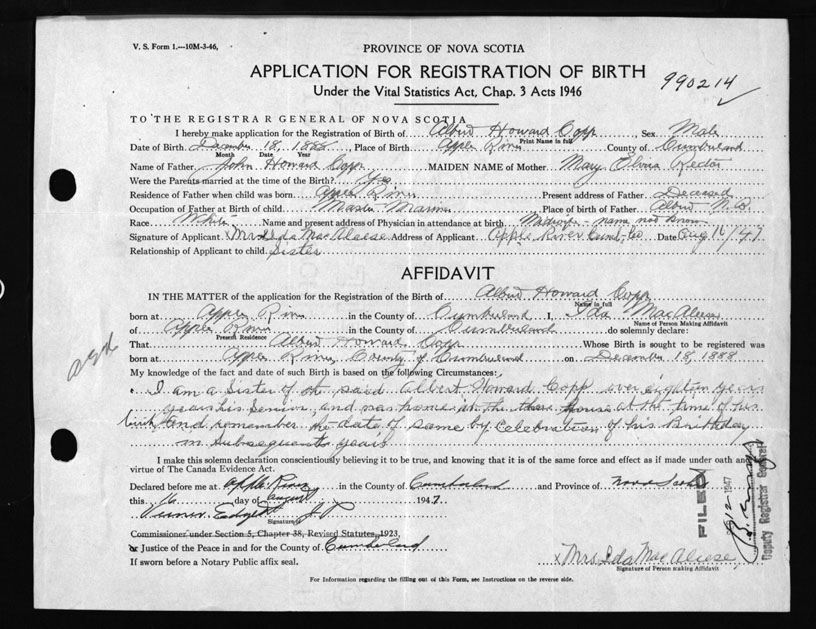 V. S. Form 1.—10M-3-46.
PROVINCE OF NOVA SCOTIA
APPLICATION FOR REGISTRATION OF BIRTH
990214
Under the Vital Statistics Act, Chap. 3 Acts 1946
TO THE REGISTRAR GENERAL OF NOVA SCOTIA
I hereby make application for the Registration of Birth of Albert Howard Copp Sex Male
Print Name in full
Date of Birth December 18, 1888 Place of Birth Apple River County of Cumberland
Month Date Year
Name of Father John Howard Copp MAIDEN NAME of Mother Mary Elvia Rector
Were the Parents married at the time of the Birth? Yes
Residence of Father when child was born Apple River Present address of Father Deceased
Occupation of Father at Birth of child Master Mariner Place of birth of Father N.B.
Race White Name and present address of Physician in attendance at birth Midwife - name not known
Signature of Applicant x Mrs Ida MacAleese Address of Applicant Apple River Cumb. Co Date Aug 16/47
Relationship of Applicant to child Sister
AFFIDAVIT
IN THE MATTER of the application for the Registration of the Birth of Albert Howard Copp
Name in full
born at Apple River in the County of Cumberland I, Ida MacAleese
Name of Person Making Affidavit
of Apple River in the County of Cumberland do solemnly declare:
Present Residence
That Albert Howard Copp Whose Birth is sought to be registered was
born at Apple River, County of Cumberland on December 18, 1888
My knowledge of the fact and date of such Birth is based on the following Circumstances:
I am a Sister of the said Albert Howard Copp over eighteen years
years his Senior, and was home at the house at the time of his
birth and remember the date of same by celebration of his Birthday
in subsequent years
I make this solemn declaration conscientiously believing it to be true, and knowing that it is of the same force and effect as if made under oath and
virtue of The Canada Evidence Act.
Declared before me at Apple River in the County of Cumberland and Province of Nova Scotia
this 16 day of August 1947
J.P.
Signature of
Commissioner under Section 5, Chapter 38, Revised Statutes, 1923,
or Justice of the Peace in and for the County of Cumberland
If sworn before a Notary Public affix seal.
x Mrs. Ida MacAleese
Signature of Person Making Affidavit
For Information regarding the filling out of this Form, see Instructions on the reverse side.
FILED
1947
Deputy Registrar General